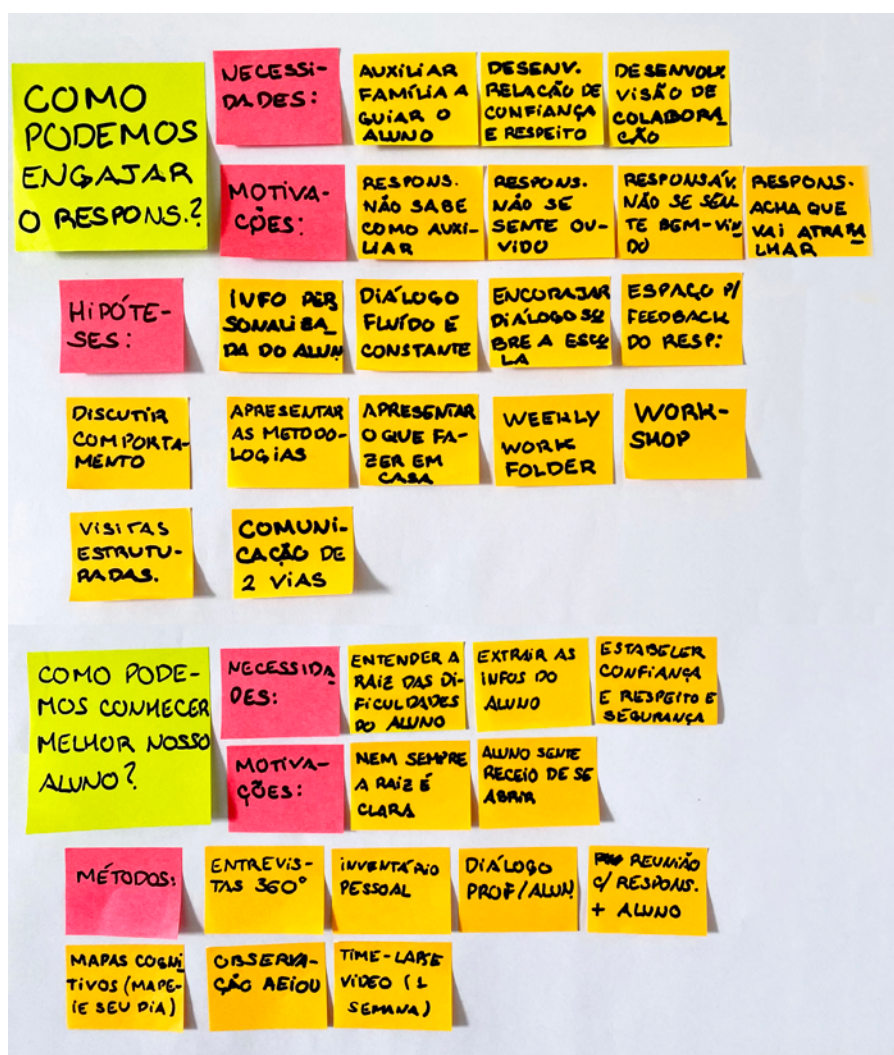 COMO
PODEMOS
ENGAJAR
O RESPONS.?
NECESSI-
DADES:
AUXILIAR
FAMÍLIA A
GUIAR O
ALUNO
DESENV.
RELAÇÃO DE
CONFIANÇA
E RESPEITO
DESENVOLV.
VISÃO DE
COLABORA
ÇÃO
MOTIVA-
ÇÕES:
RESPONS.
NÃO SABE
COMO AUXI-
LIAR
RESPONS.
NÃO SE
SENTE OU-
VIDO
RESPONSÁV.
NÃO SE SEN
TE BEM-VIN
DO
RESPONS.
ACHA QUE
VAI ATRAPA
LHAR
HIPÓTE-
SES:
INFO PER
SONALIZA
DA DO ALUN
DIÁLOGO
FLUÍDO E
CONSTANTE
ENCORAJAR
DIÁLOGO SO
BRE A ESCO
LA
ESPAÇO P/
FEEDBACK
DO RESP:
DISCUTIR
COMPORTA-
MENTO
APRESENTAR
AS METODO-
LOGIAS
APRESENTAR
O QUE FA-
ZER EM
CASA
WEEKLY
WORK
FOLDER
WORK-
SHOP
VISITAS
ESTRUTU-
RADAS.
COMUNI-
CAÇÃO DE
2 VIAS
COMO PODE-
MOS CONHECER
MELHOR NOSSO
ALUNO?
NECESSIDA
DES:
ENTENDER A
RAIZ DAS DI-
FICULDADES
DO ALUNO
EXTRAIR AS
INFOS DO
ALUNO
ESTABELER
CONFIANÇA
E RESPEITO E
SEGURANÇA
MOTIVA-
ÇÕES:
NEM SEMPRE
A RAIZ É
CLARA
ALUNO SENTE
RECEIO DE SE
ABRIR
MÉTODOS:
ENTREVIS-
TAS 360°
INVENTÁRIO
PESSOAL
DIÁLOGO
PROF/ALUN
REUNIÃO
C/ RESPONS.
+ ALUNO
MAPAS COGNI
TIVOS (MAPE-
IE SEU DIA)
OBSERVA-
ÇÃO AEIOU
TIME-LAPSE
VÍDEO (1
SEMANA)